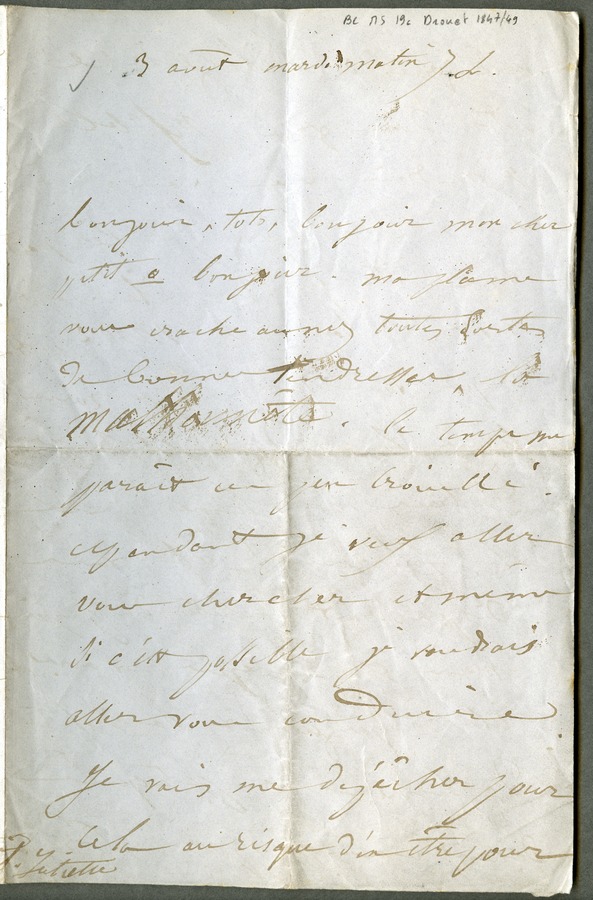 BC MS 19c Drouet 1847/49
3 août mardi matin 7 h.
bonjour, toto, bonjour mon cher
petit o bonjour. ma plume
vous crache au nez toutes sortes
de bonnes tendresses, la
le temps me
paraît un peu brouillé.
cependant je veux aller
vous chercher et même
si c'est possible je voudrais
aller vous conduire
Je vais me dépêcher pour
cela au risque d'en être pour
Juliette